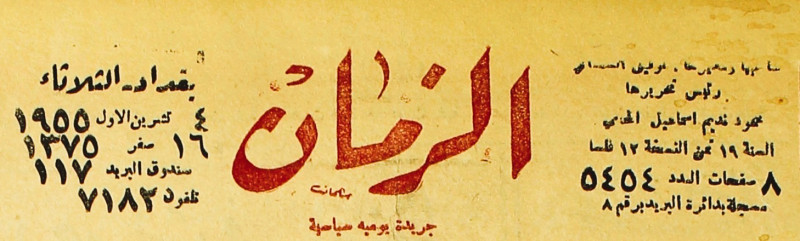 صاحبها ومديرها . توفيق السمعاني
رئيس تحريرها
محمود نديم اسماعيل المحامي
السنة ١٩ ثمن النسخة ١٢ فلسا
٨ صفحات العدد ٥٤٥٤
مسجلة بدائرة البريد برقم ٨
الزمان
جريدة يومية سياسية
بغداد - الثلاثاء
٤ تشرين الاول ١٩٥٥
١٦ صفر ١٣٧٥
صندوق البريد ١١٧
تلفون ٧١٨٣